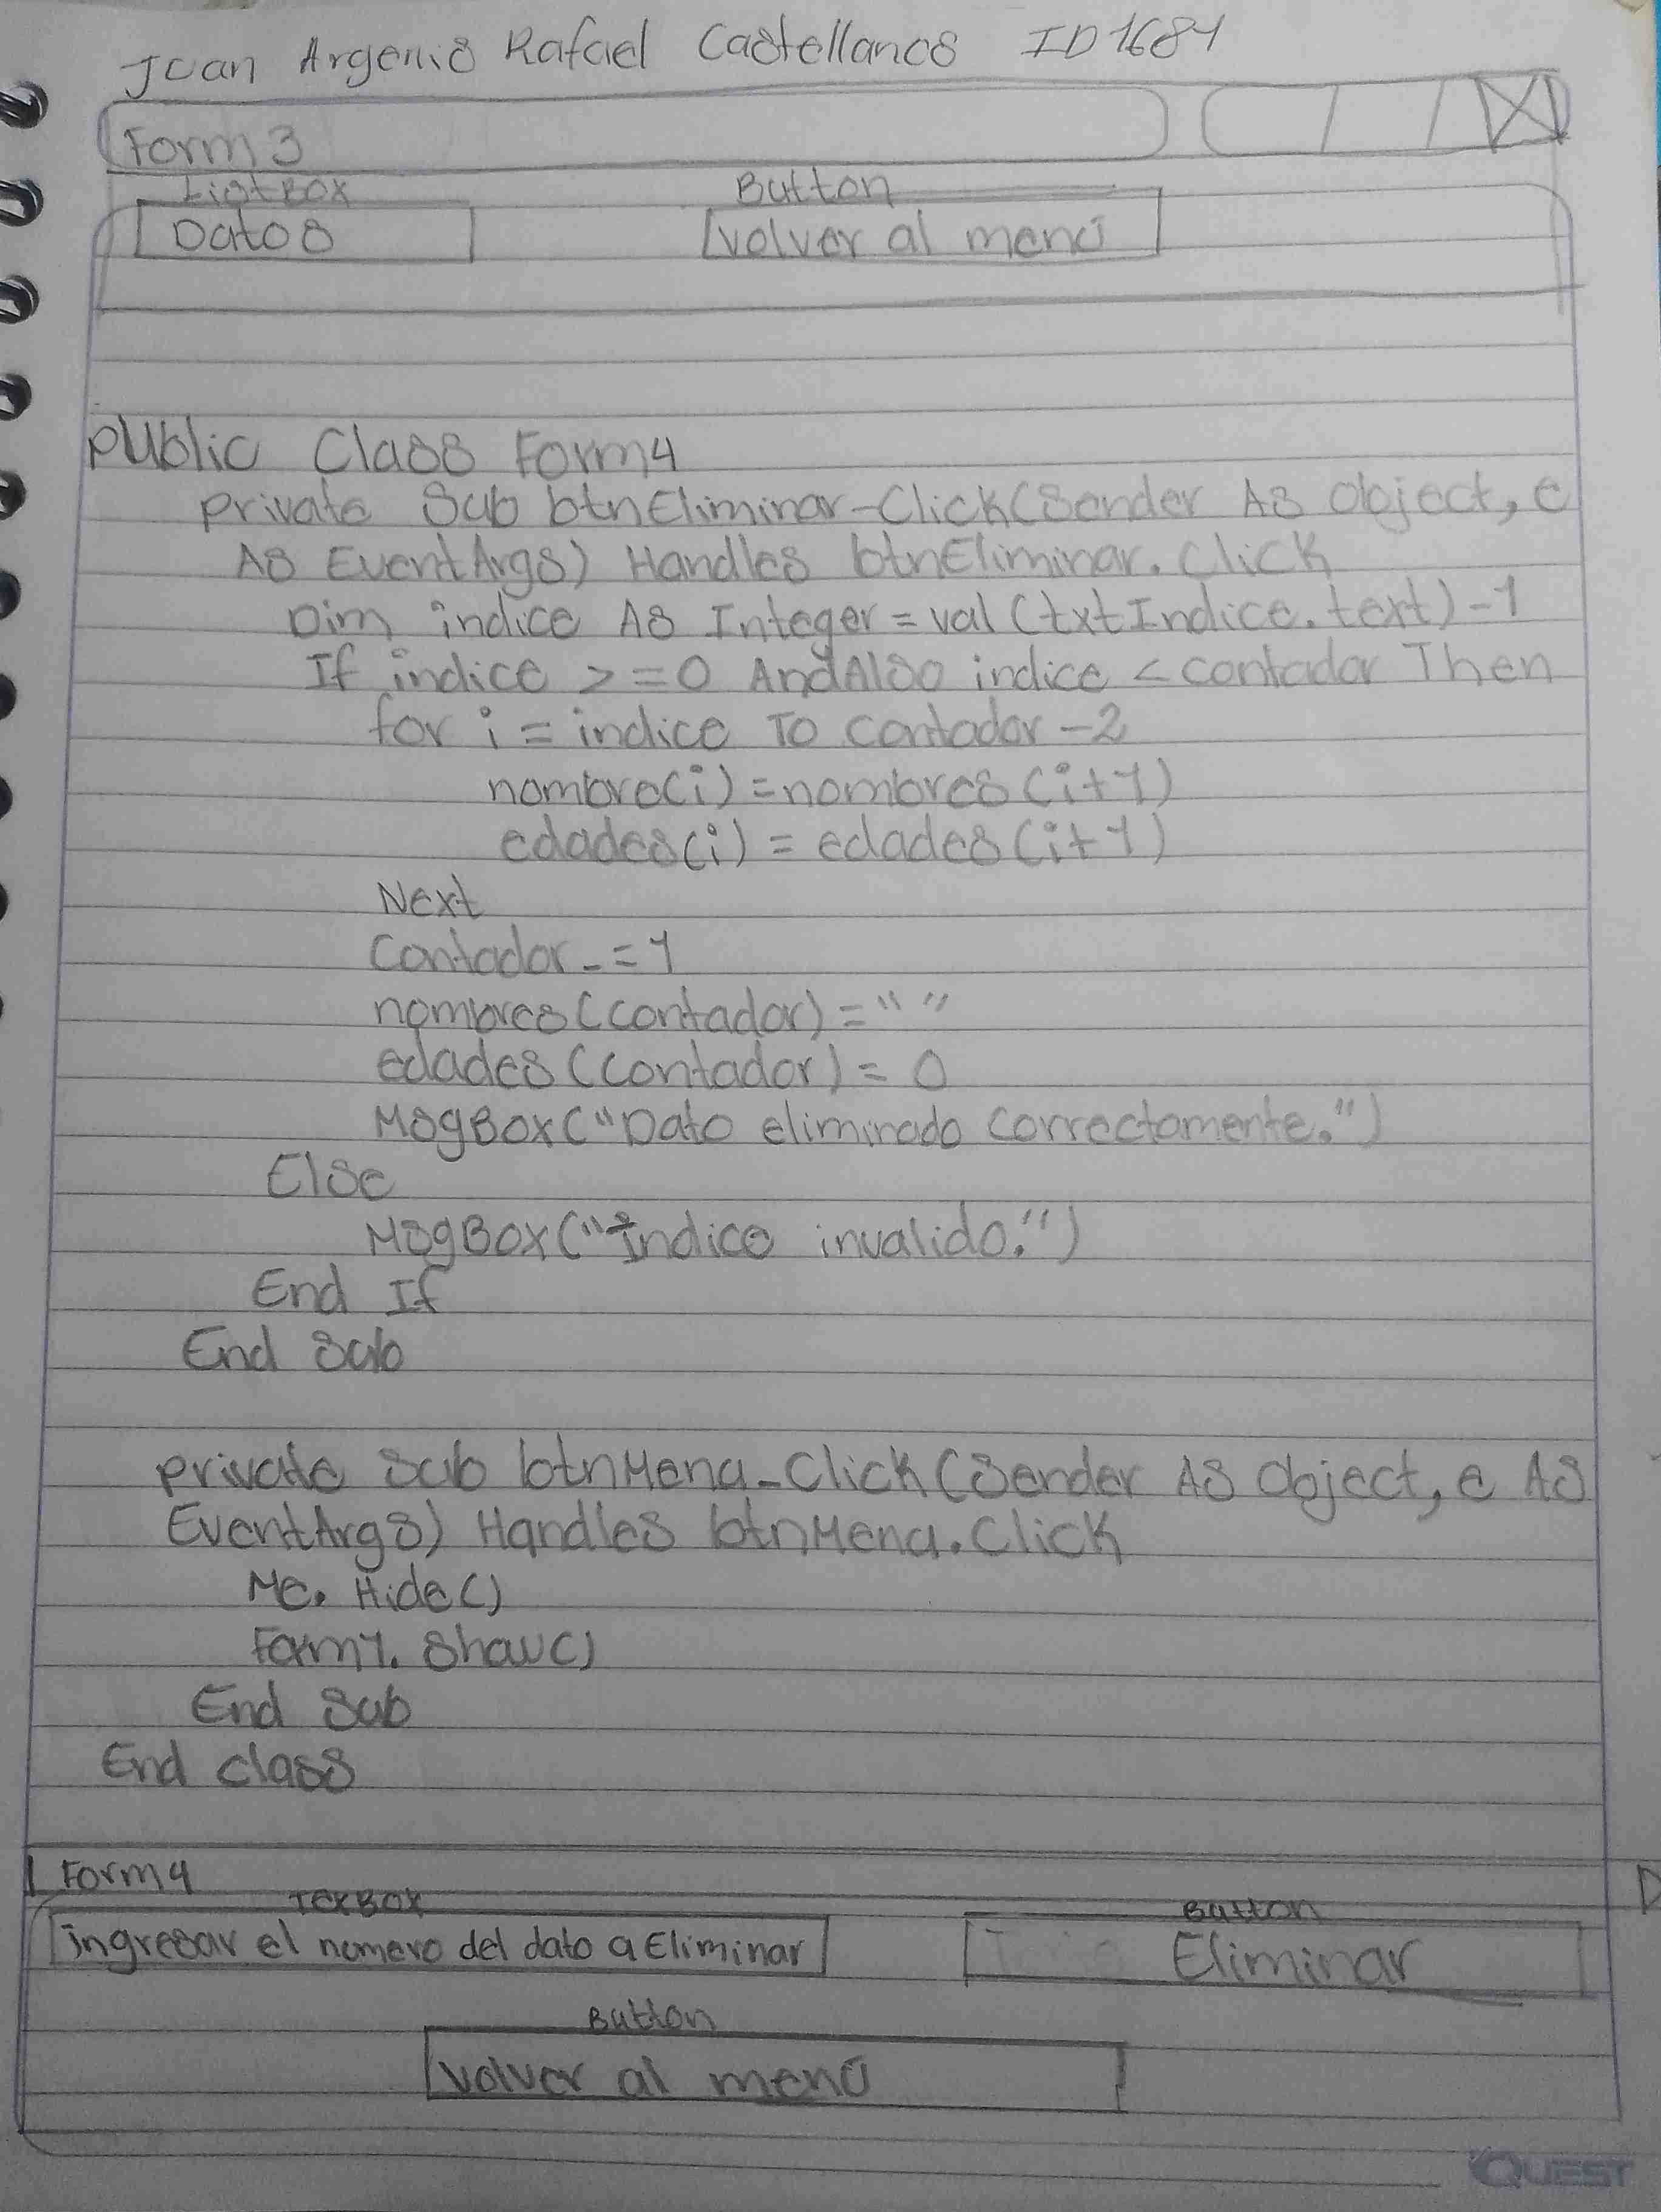 Juan Argenis Rafael Castellanos ID1684
Form3
ListBox Button
Datos volver al menú
Public Class Form4
private Sub btnEliminar-Click(Sender As Object, e
As EventArgs) Handles btnEliminar.Click
Dim indice As Integer = val (txtIndice.text)-1
If indice >=0 AndAlso indice < contador Then
for i = indice To contador -2
nombre(i) = nombres (i+1)
edades(i) = edades (i+1)
Next
Contador -= 1
nombres (contador) = " "
edades (contador) = 0
MsgBox("Dato eliminado correctamente.")
Else
MsgBox("Indice invalido.")
End If
End Sub
private Sub btnMenu-Click (Sender As Object, e As
EventArgs) Handles btnMenu.Click
Me. Hide()
Form1. Show()
End Sub
End class
Form4
TexBox Button
ingresar el numero del dato a Eliminar Eliminar
Button
volver al menú
QUEST